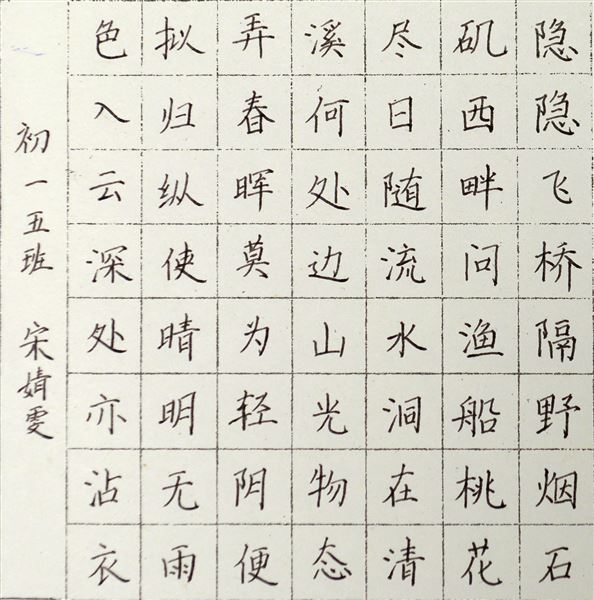 隐隐飞桥隔野烟石
矶西畔问渔船桃花
尽日随流水洞在清
溪何处边山光物态
弄春晖莫为轻阴便
拟归纵使晴明无雨
色入云深处亦沾衣
初一五班 宋婧雯